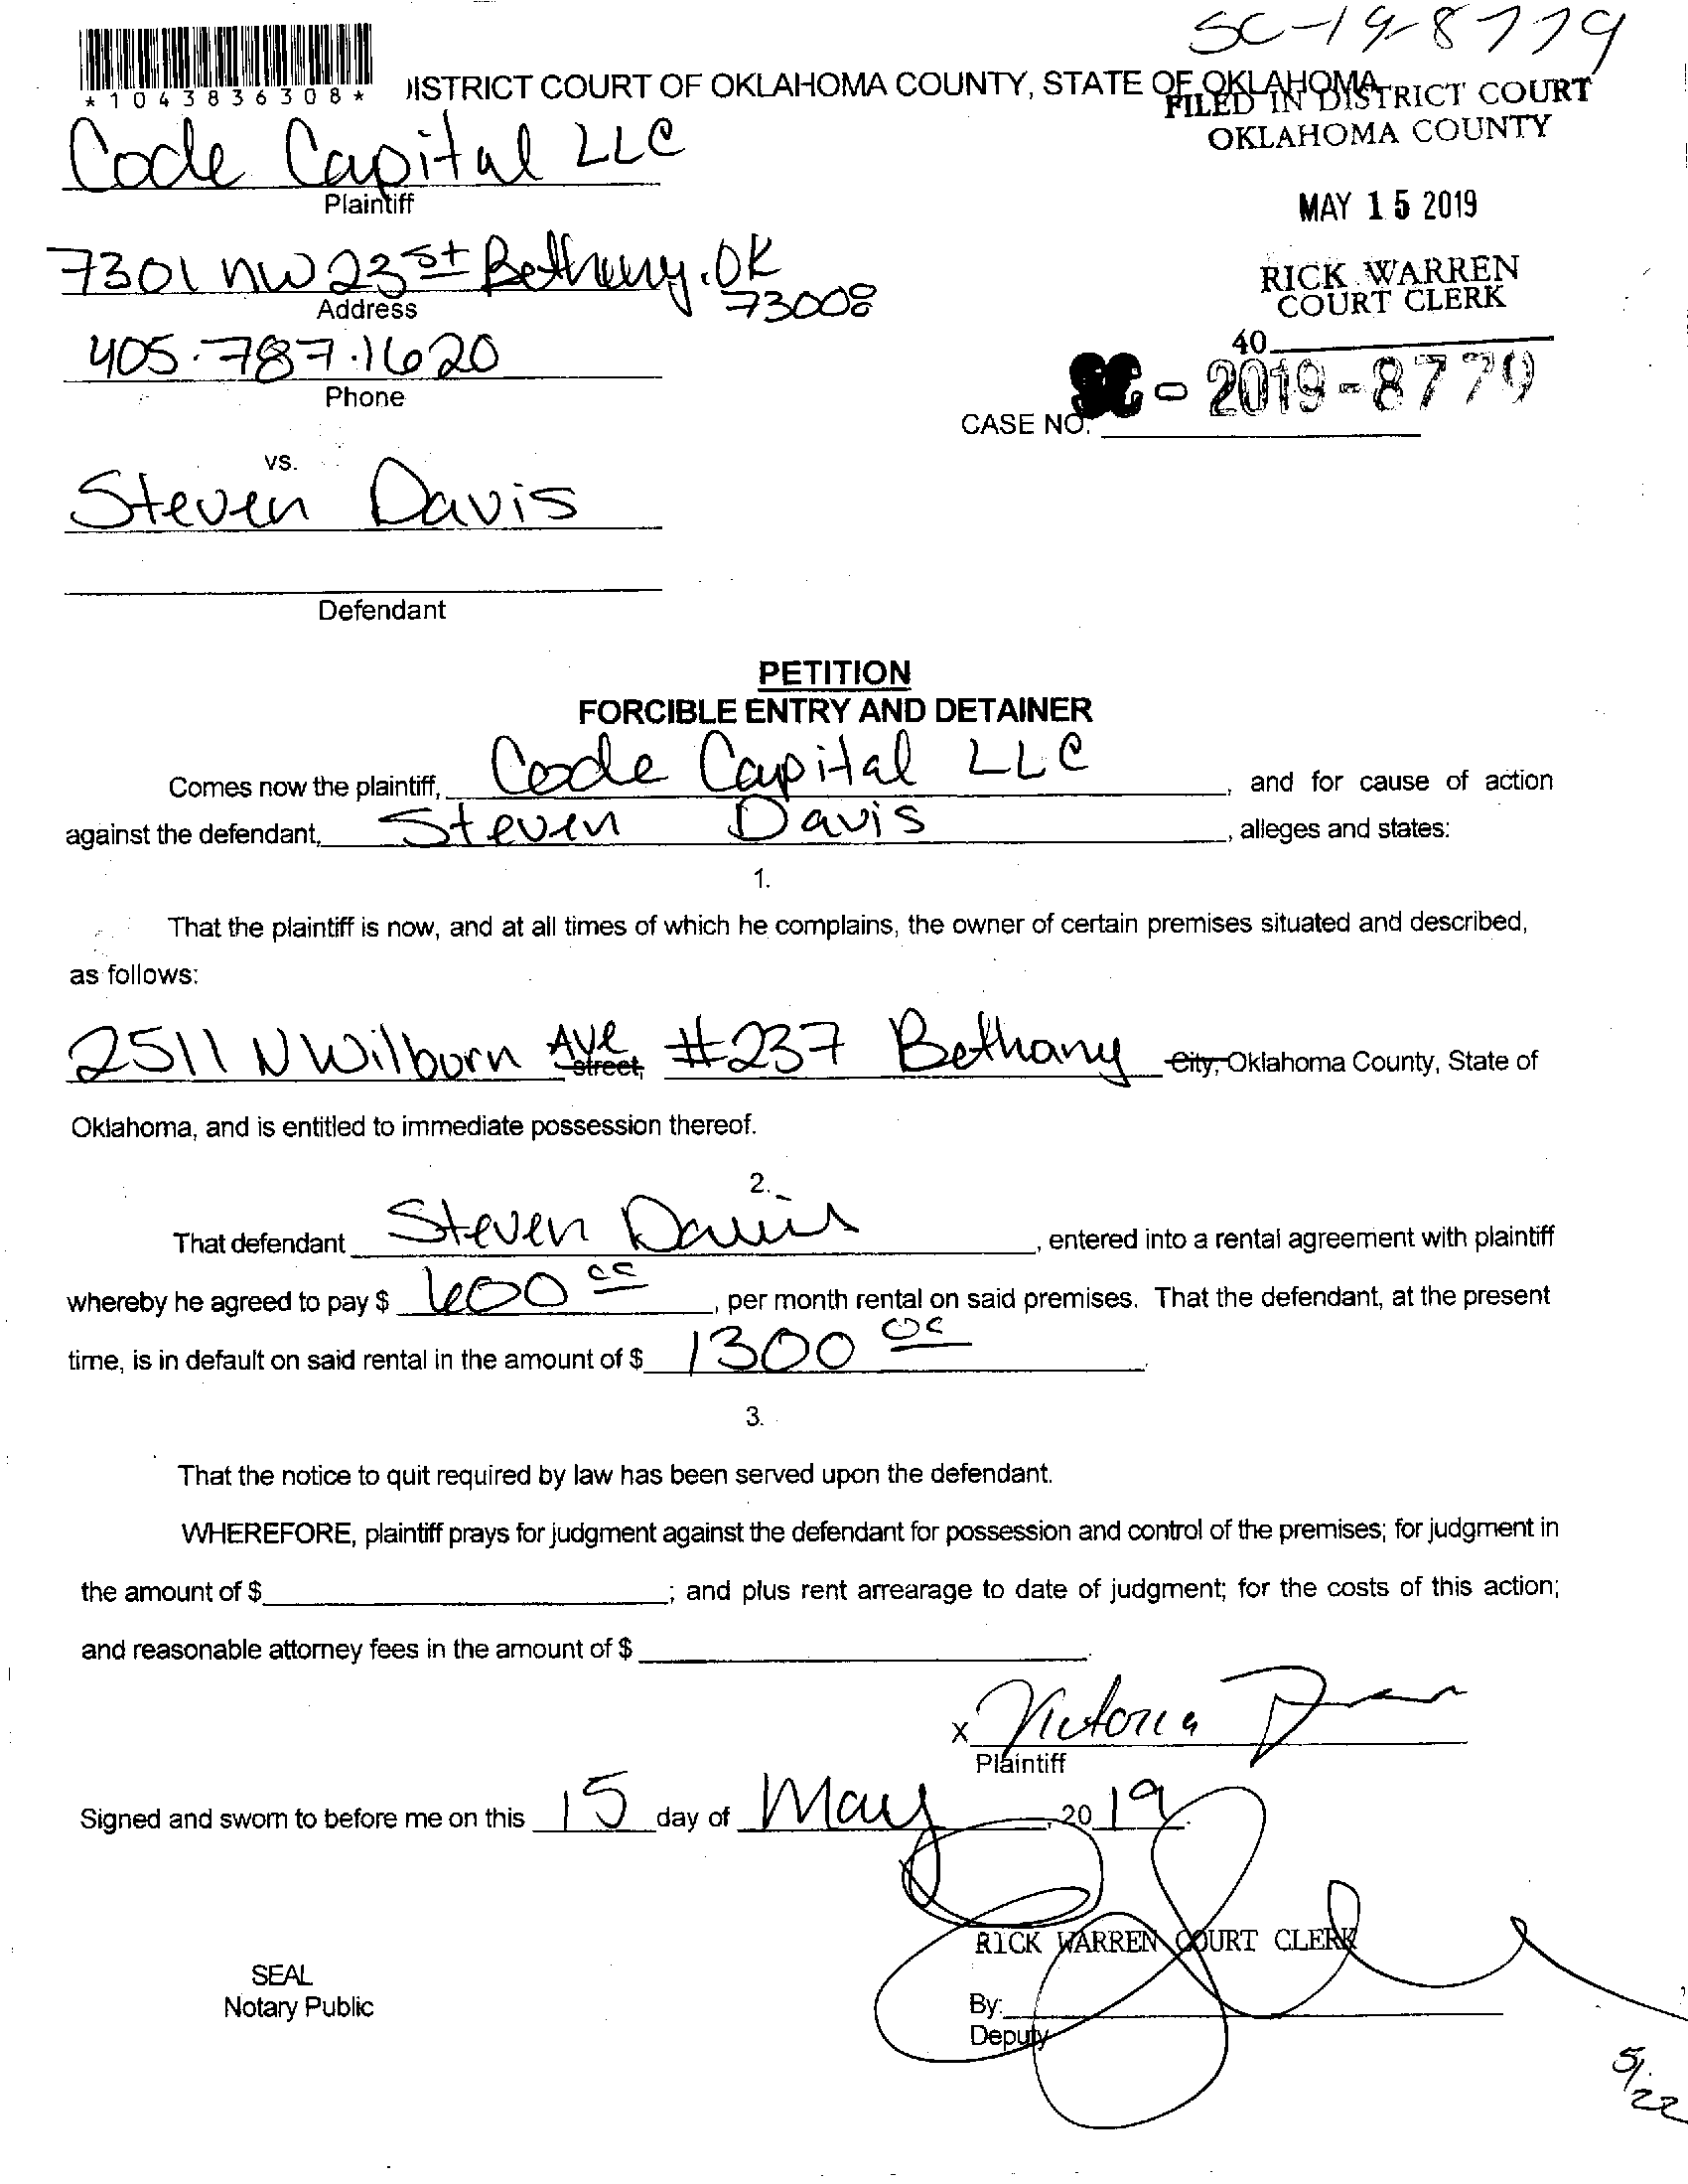 SC-19-8779
*1043836308*
DISTRICT COURT OF OKLAHOMA COUNTY, STATE OF OKLAHOMA
FILED IN DISTRICT COURT
OKLAHOMA COUNTY
Code Capital LLC
Plaintiff
MAY 15 2019
7301 NW 23 St Bethany, OK
73008
Address
RICK WARREN
COURT CLERK
405.787.1620
Phone
40
CASE NO. SC-2019-8779
vs.
Steven Davis
Defendant
PETITION
FORCIBLE ENTRY AND DETAINER
Comes now the plaintiff, Code Capital LLC, and for cause of action
against the defendant, Steven Davis, alleges and states:
1.
That the plaintiff is now, and at all times of which he complains, the owner of certain premises situated and described,
as follows:
2511 N Wilburn Ave street, #237 Bethany City, Oklahoma County, State of
Oklahoma, and is entitled to immediate possession thereof.
2.
That defendant Steven Davis, entered into a rental agreement with plaintiff
whereby he agreed to pay $ 600 00, per month rental on said premises. That the defendant, at the present
time, is in default on said rental in the amount of $ 1300 00.
3.
That the notice to quit required by law has been served upon the defendant.
WHEREFORE, plaintiff prays for judgment against the defendant for possession and control of the premises; for judgment in
the amount of $ ; and plus rent arrearage to date of judgment; for the costs of this action;
and reasonable attorney fees in the amount of $ .
X Victoria
Plaintiff
Signed and sworn to before me on this 15 day of May, 2019.
RICK WARREN COURT CLERK
SEAL
Notary Public
By:
Deputy
5/22